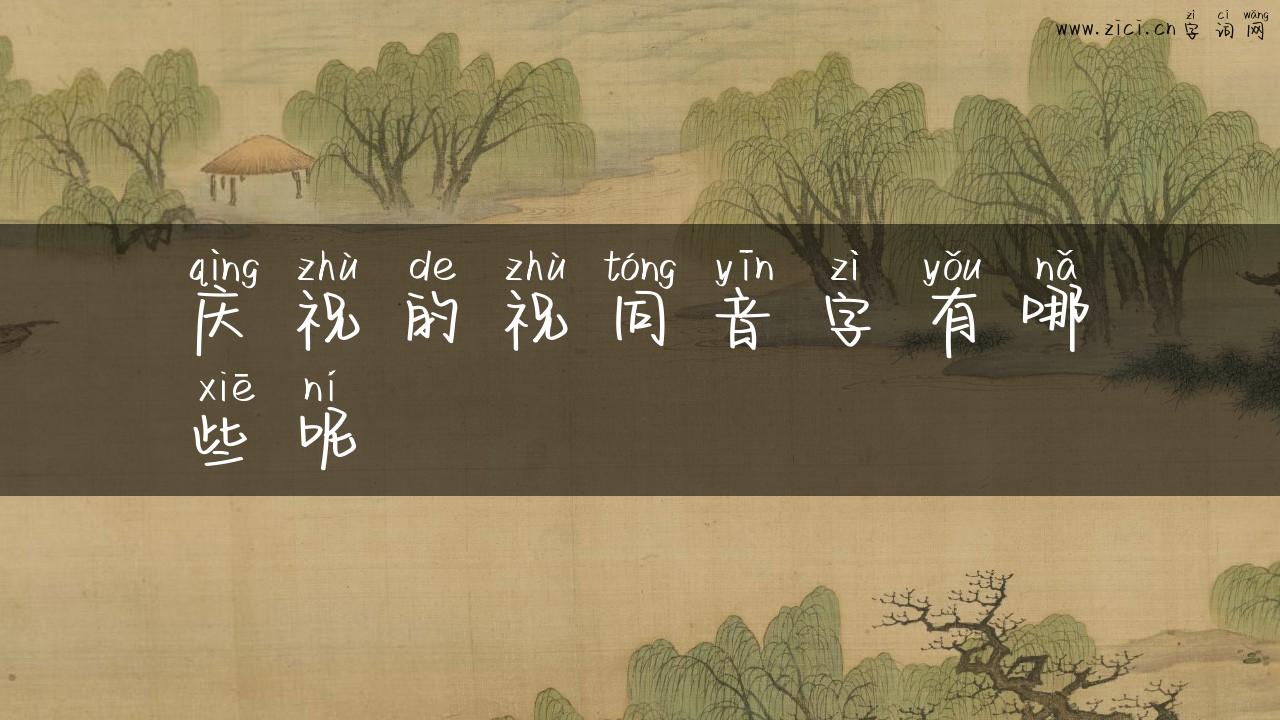 zì cí wǎng
www.zici.cn 字词网
qìng zhù de zhù tóng yīn zì yǒu nǎ
庆祝的祝同音字有哪
xiē ní
些呢